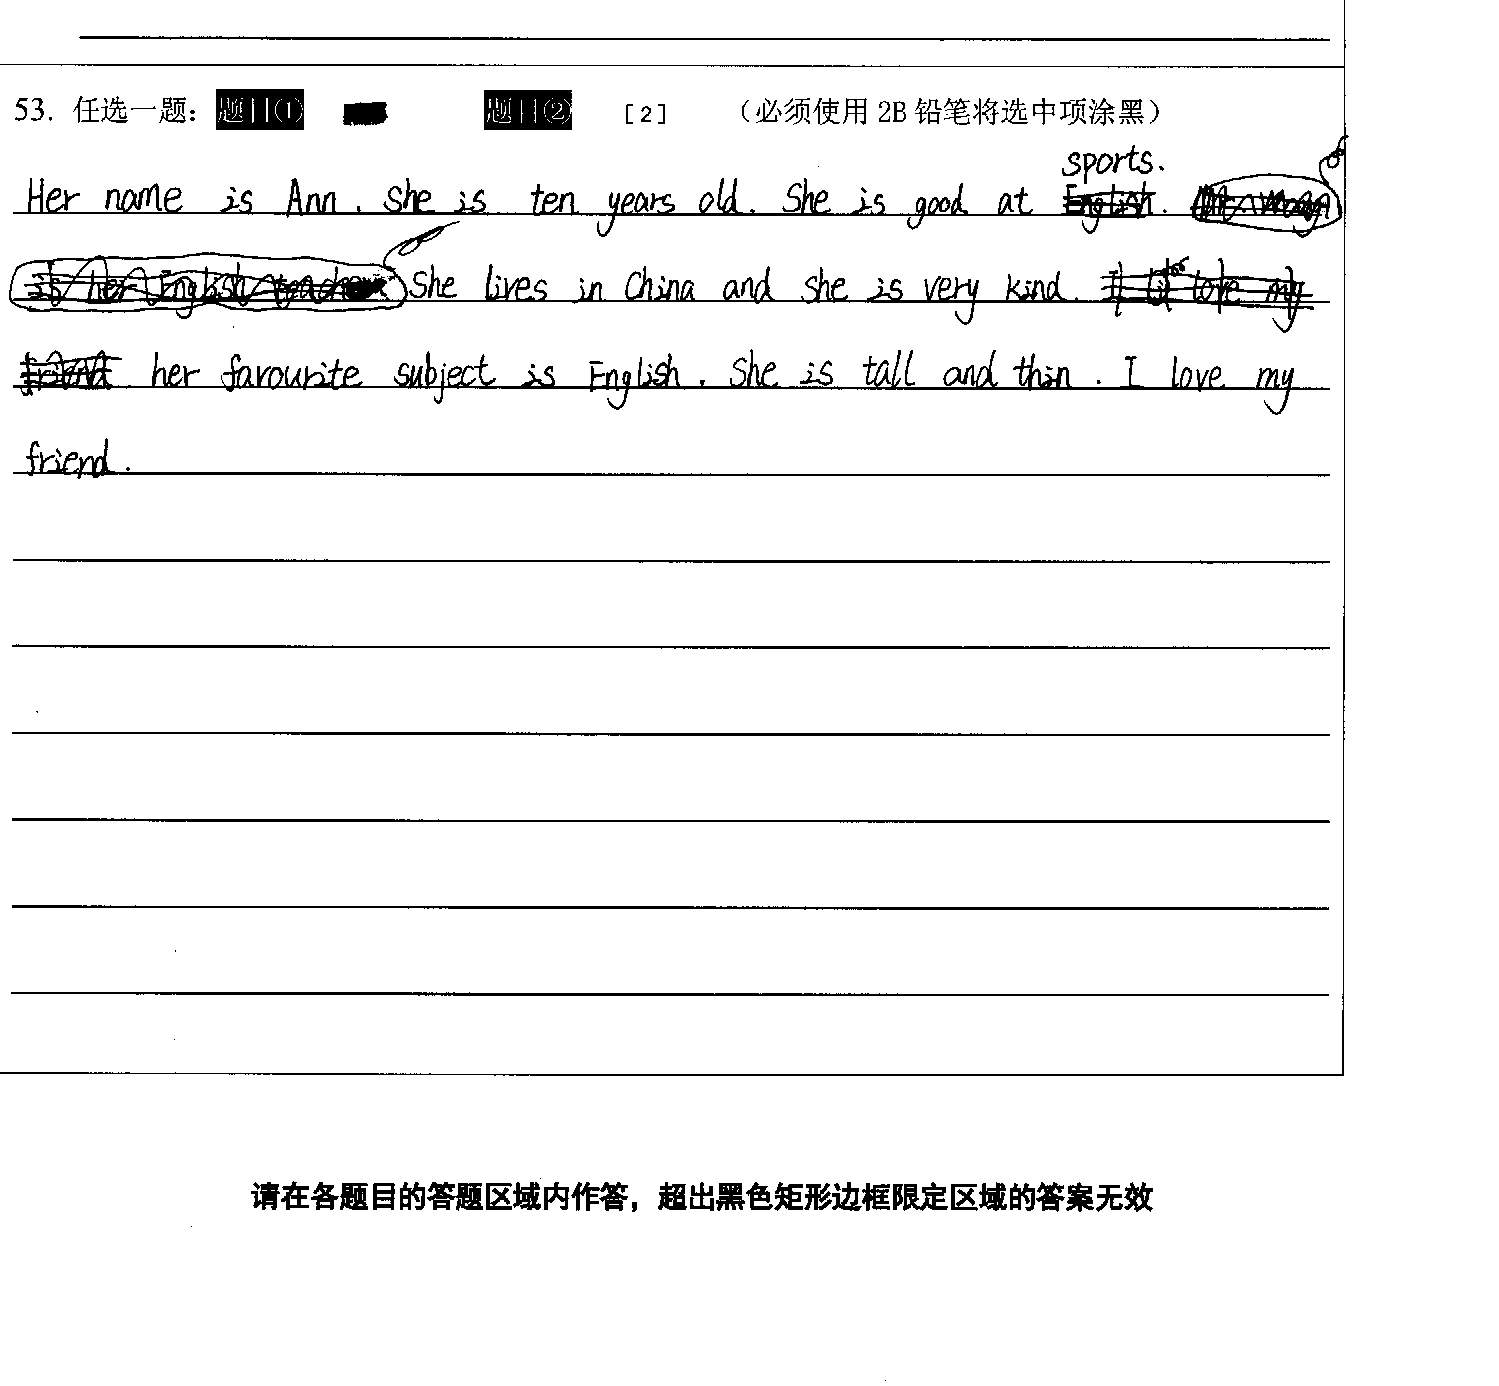 53. 任选一题： 题目① 题目② [2] （必须使用 2B 铅笔将选中项涂黑）
sports.
Her name is Ann. She is ten years old. She is good at English.
is her English teacher She lives in China and she is very kind. love my
friend her favourite subject is English. She is tall and thin. I love my
friend.
请在各题目的答题区域内作答，超出黑色矩形边框限定区域的答案无效